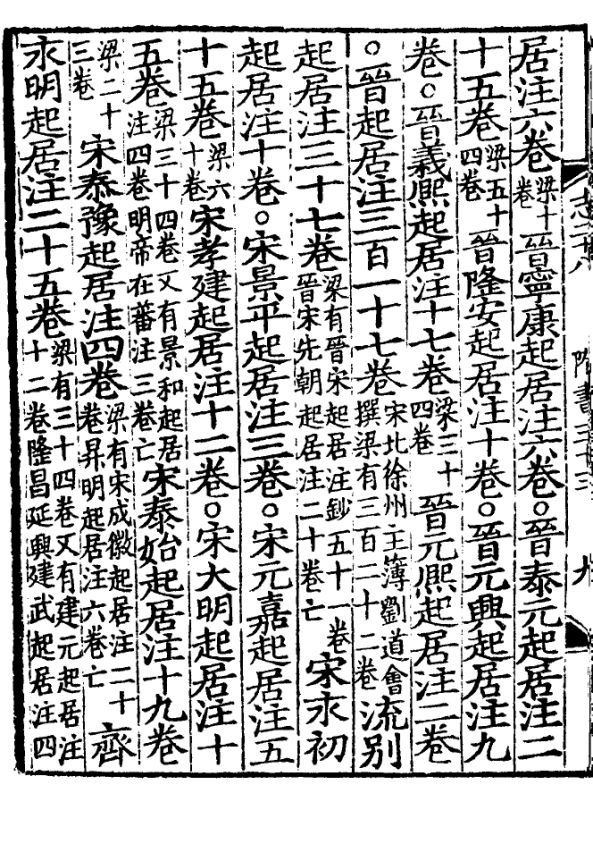 志二十八　隋書三十三　九
居注六卷梁十卷晉寧康起居注六卷○晉泰元起居注二
十五卷梁五十四卷晉隆安起居注十卷○晉元興起居注九
卷○晉義熙起居注十七卷梁三十四卷晉元熙起居注二卷
○晉起居注三百一十七卷宋北徐州主簿劉道會撰梁有三百二十二卷流别
起居注三十七卷梁有晉宋起居注鈔五十一卷晉宋先朝起居注二十卷亡宋永初
起居注十卷○宋景平起居注三卷○宋元嘉起居注五
十五卷梁六十卷宋孝建起居注十二卷○宋大明起居注十
五卷梁三十四卷又有景和起居注四卷明帝在蕃注三卷亡宋泰始起居注十九卷
梁二十三卷宋泰豫起居注四卷梁有宋成徽起居注二十卷昇明起居注六卷亡齊
永明起居注二十五卷梁有三十四卷又有建元起居注十二卷隆昌延興建武起居注四